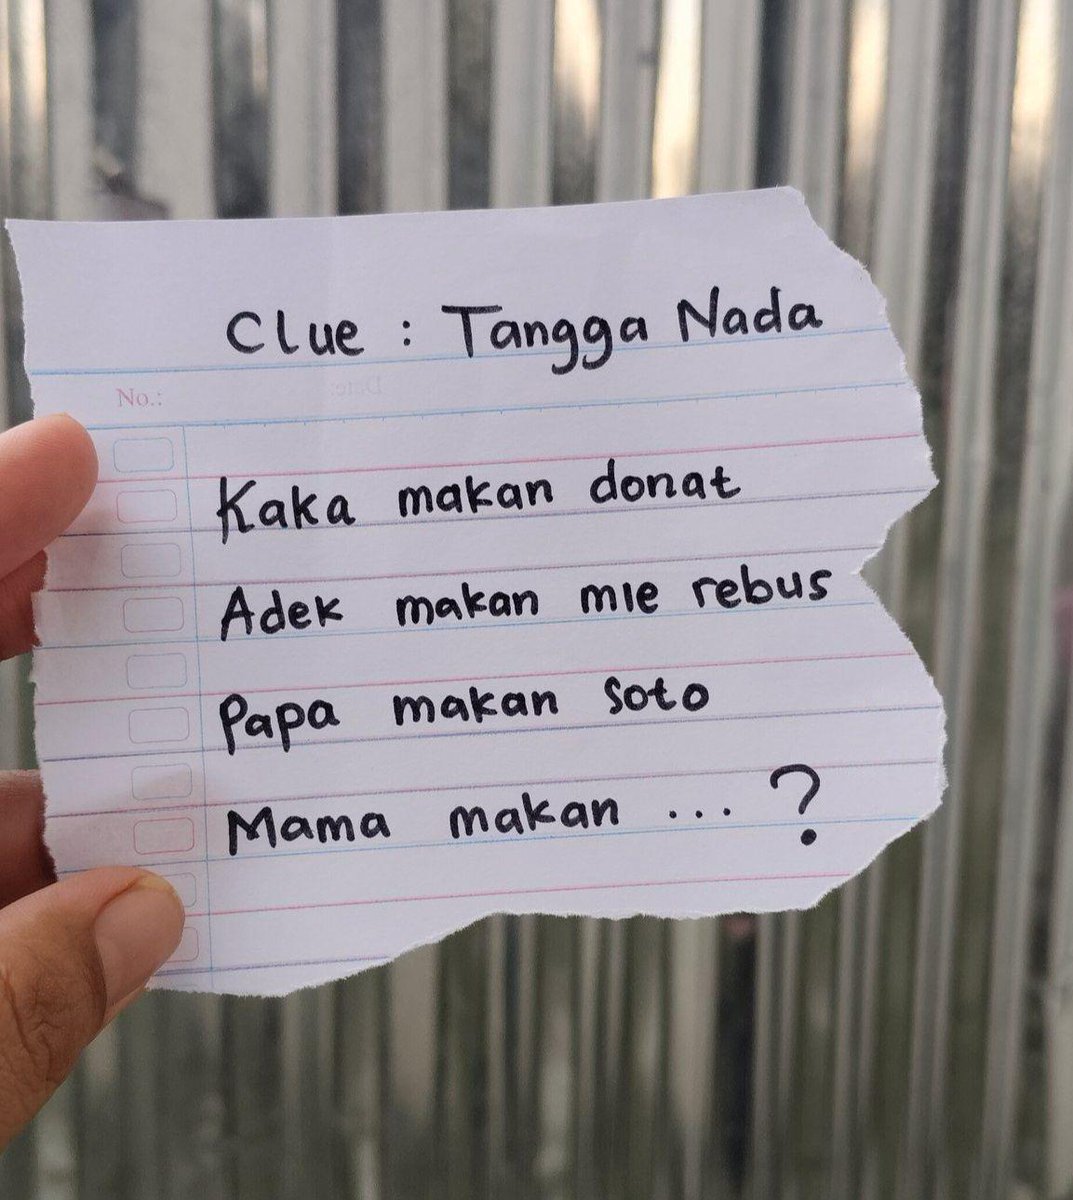 Clue : Tangga Nada
No.:
Kaka makan donat
Adek makan mie rebus
Papa makan soto
Mama makan ... ?